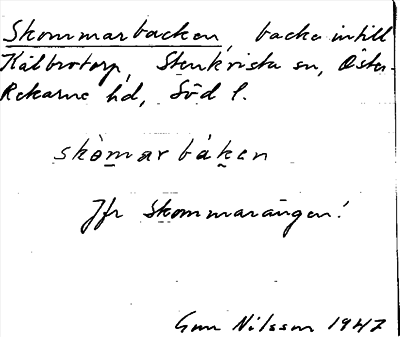 Skommarbacken, backe intill
Kälbrotorp, Stenkvista sn, Öster-
Rekarne hd, Söd l.
skòmarbàken
Jfr Skommarängen!
Gun Nilsson 1947